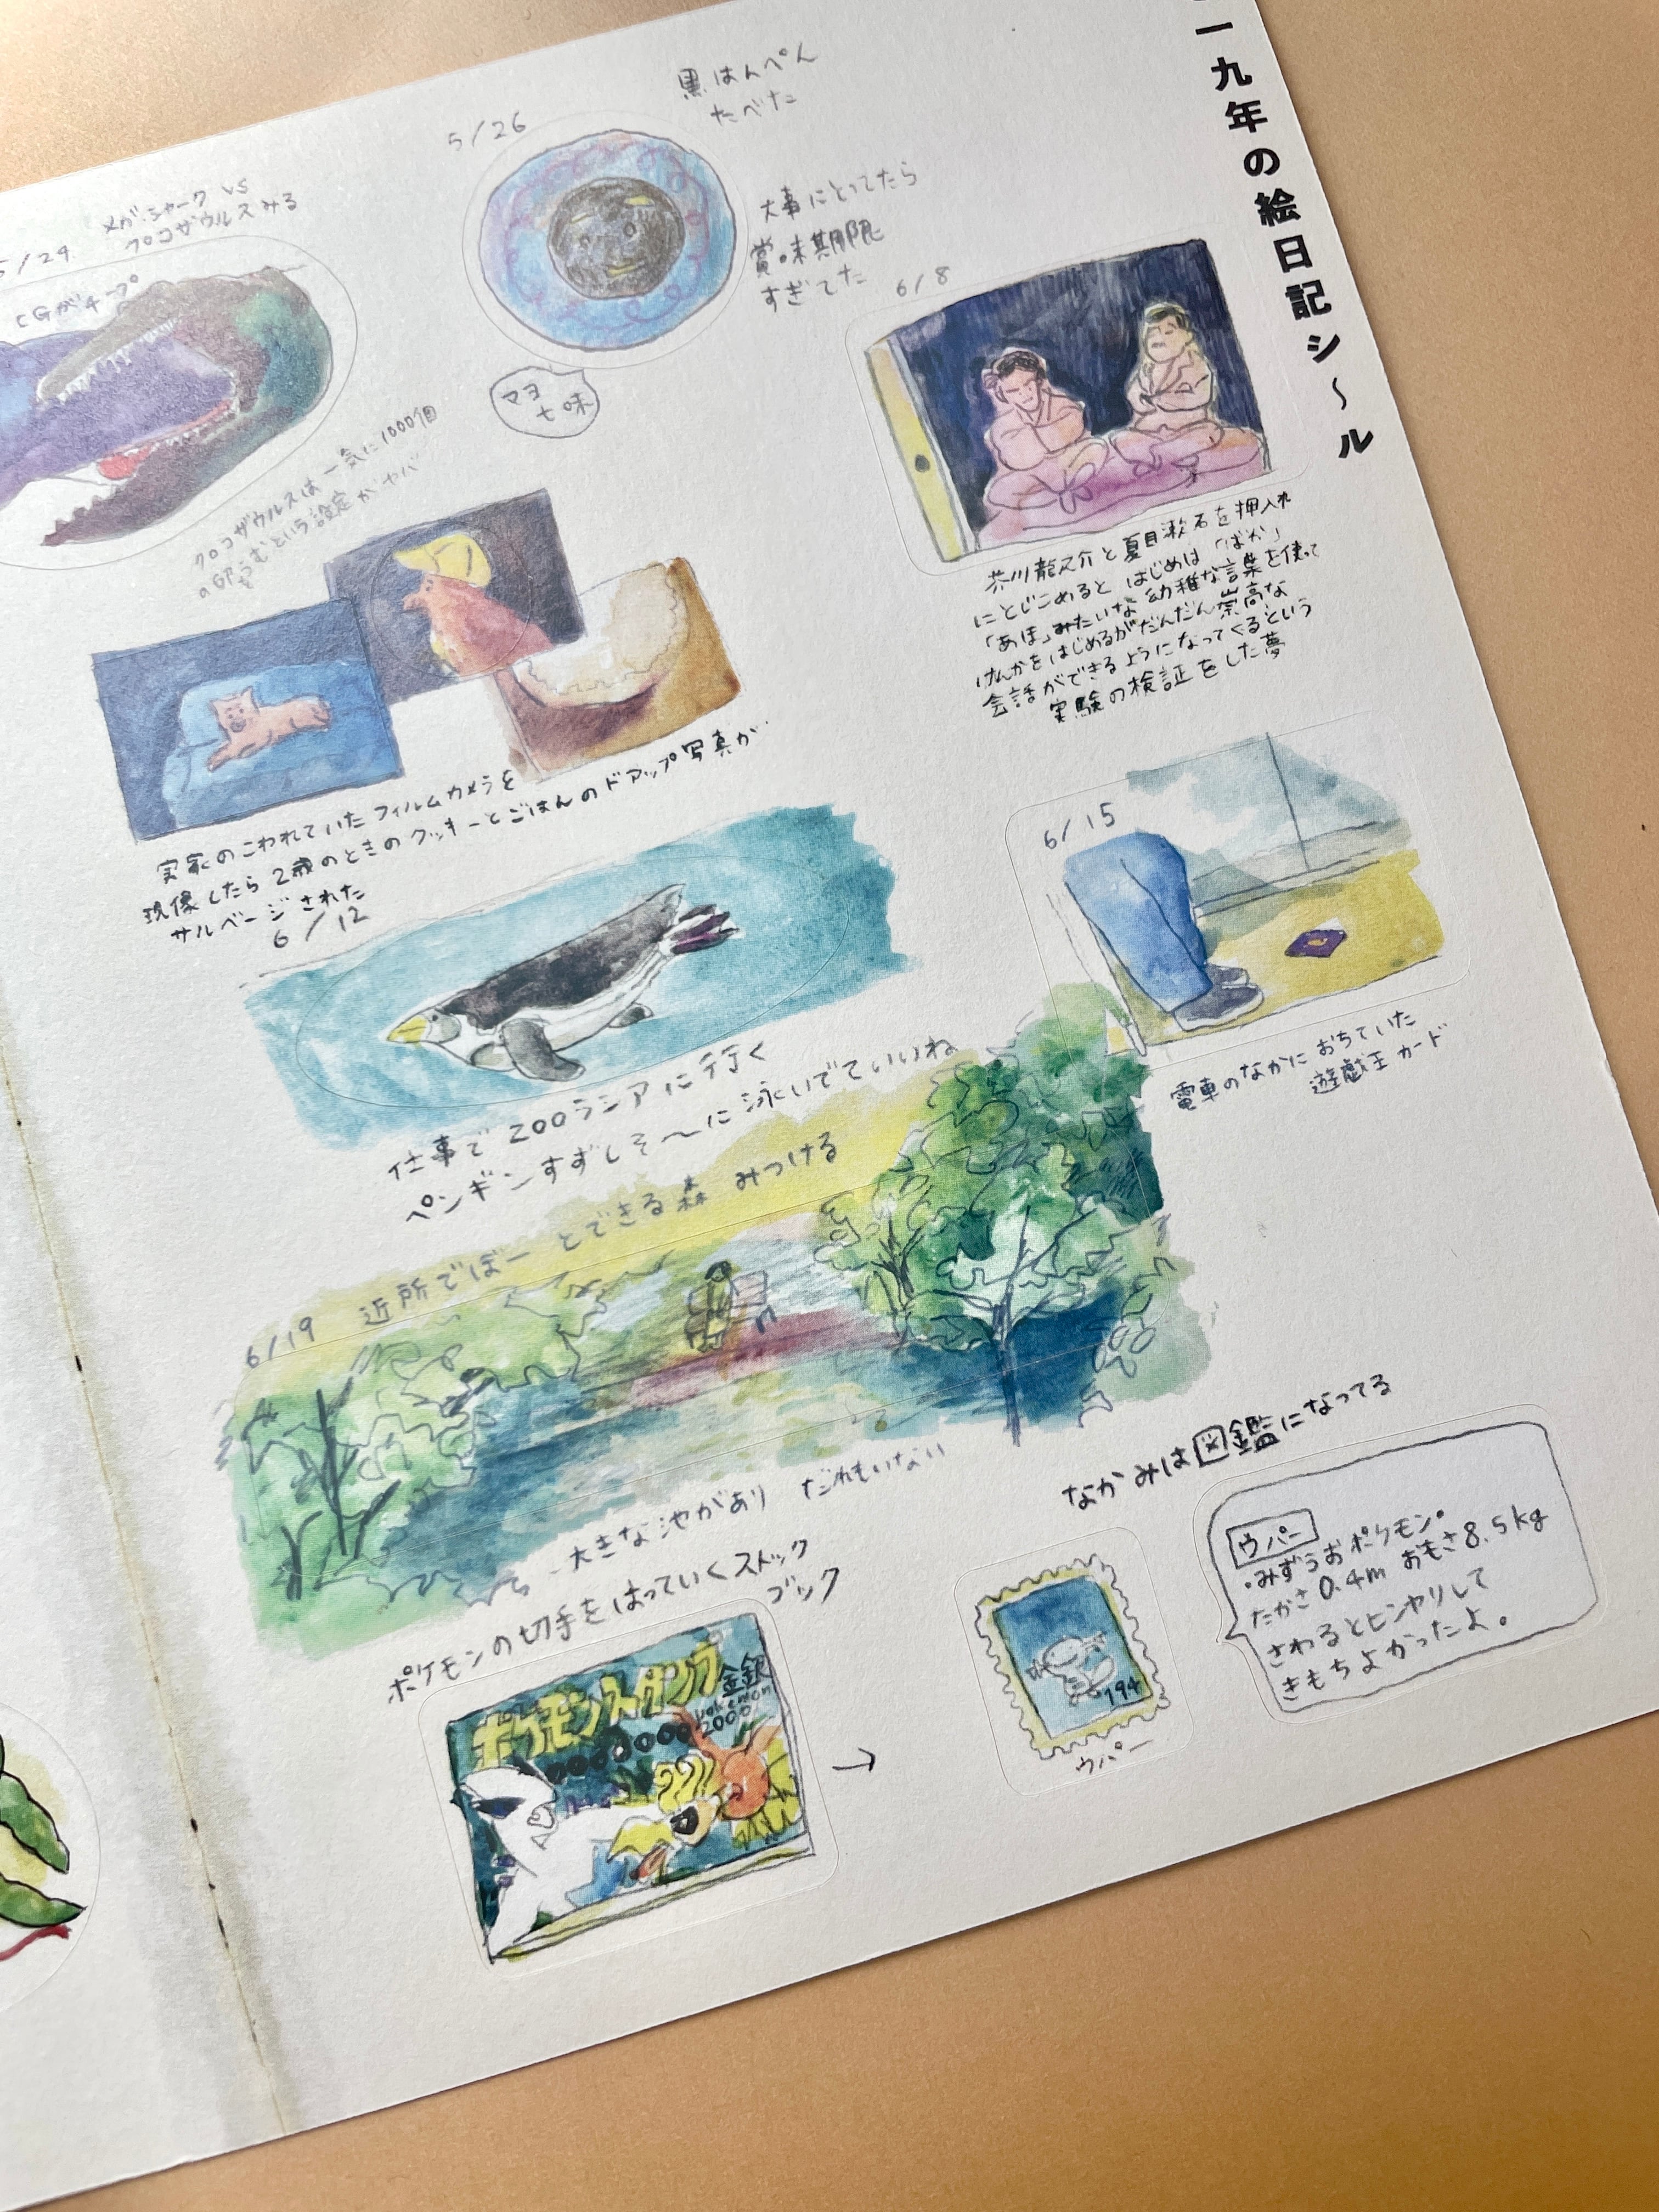 一九年の絵日記シ〜ル
5/24
メガ・シャーク VS
クロコザウルス みる
CGがチープ
クロコザウルスは一気に1000個
の卵をうむという設定がヤバ
5/26
黒はんぺん
たべた
大事にとってたら
賞味期限
すぎてた
マヨ
七味
6/8
芥川龍之介と夏目漱石を押入れ
にとじこめると はじめは「ばか」
「あほ」みたいな 幼稚な言葉を使って
けんかをはじめるがだんだん崇高な
会話ができるようになってくるという
実験の検証をした夢
実家のこわれていたフィルムカメラを
現像したら 2歳のときのクッキーとごはんのドアップ写真が
サルベージされた
6/12
仕事で ZOOラシアに行く
ペンギンすずしそ〜に泳いでていいね
6/15
電車のなかに おちていた
遊戯王カード
6/19 近所でぼーっとできる森 みつける
大きな池があり だれもいない
ポケモンの切手をはっていくストック
ブック
ポケモンスタンプ
金銀
pokemon
2000
→
なかみは図鑑になってる
194
ウパー
ウパー
・みずうおポケモン。
たかさ0.4m おもさ8.5kg
さわるとヒンヤリして
きもちよかったよ。